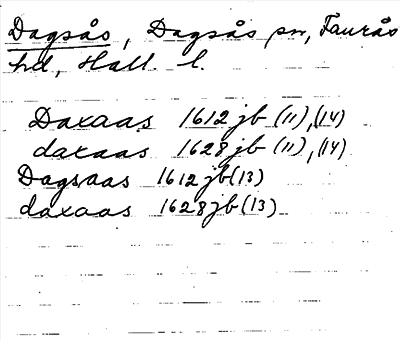 Dagsås, Dagsås sn, Faurås
hd, Hall. l.
Daxaas 1612 jb (11), (14)
daxaas 1628 jb (11), (14)
Dagsaas 1612 jb (13)
daxaas 1628 jb (13)